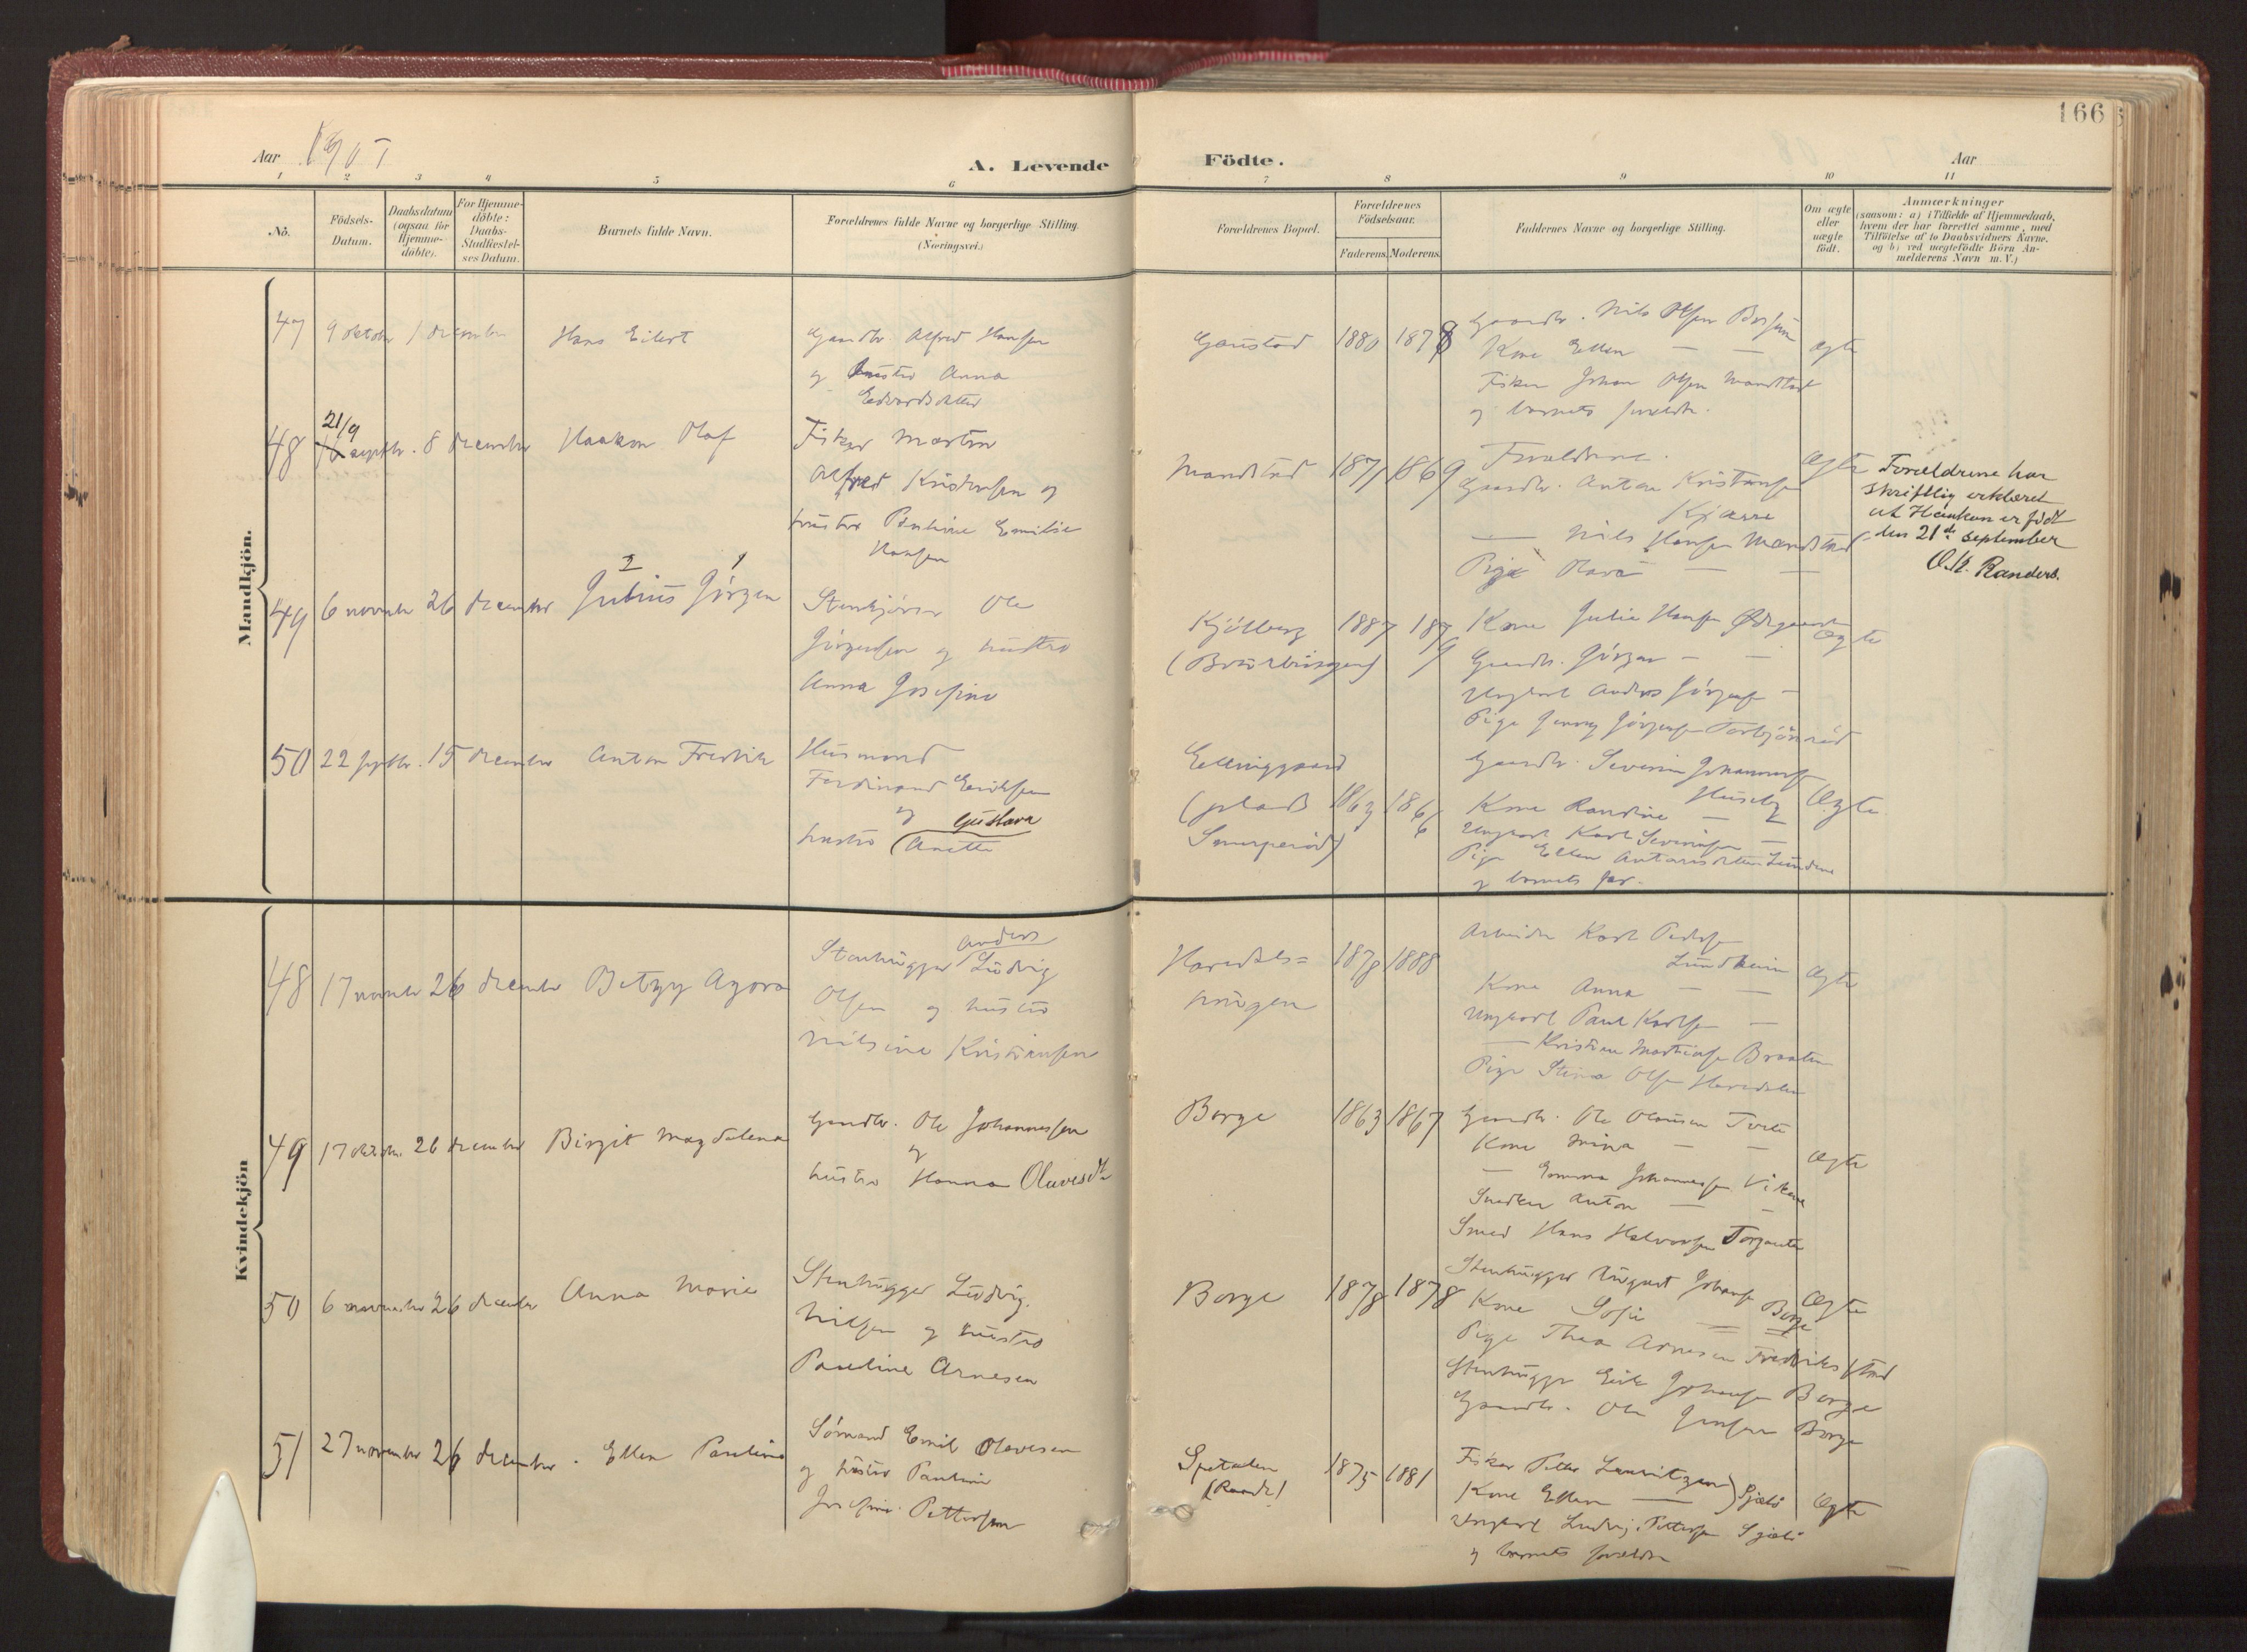 166
Aar 1907
A. Levende Födte.
Aar
1 2 3 4 5 6 7 8 9 10 11
No.
Födsels-Datum.
Daabsdatum (ogsaa for Hjemme-döbte).
For Hjemme-döbte: Daabs-Stadfæstel-ses Datum.
Barnets fulde Navn.
Forældrenes fulde Navne og borgerlige Stilling. (Næringsvei.)
Forældrenes Bopæl.
Forældrenes Födselsaar.
Faderens. Moderens.
Faddernes Navne og borgerlige Stilling.
Om ægte eller uægte födt.
Anmærkninger
(saasom: a) i Tilfælde af Hjemmedaab,
hvem der har forrettet samme, med
Tilföielse af to Daabsvidners Navne.
og b) ved uægtefödte Börn An-
melderens Navn m. V.)
Mandkjön.
47 9 oktober 1 december Hans Eilert
Gaardbr Alfred Hansen
og hustro Anna
Edvardsdatter
Gaustad 1880 1878
Gaardbr. Nils Olsen
Kone Ellen — —
Fisker Johan Olsen Mandstad
og barnets foreldre.
ægte
48 21/9 16 septbr. 8 december Haakon Olaf
Fisker Martin
Alfred Kristensen og
hustro Emilie
Hansen
Mandstad 1871 1869
Foreldrene.
Gaardbr. Anton Kristensen
Kjærre
— Nils Hansen Mandstad
Pige Olava — —
Ægte
Forældrene har
skriftlig erklæret
at Haakon er född
den 21de september
O. K. Randers.
49 6 november 26 december 2 1 Julius Jörgen
Stenkjörer Ole
Jörgensen og hustro
Anna Josefine
Kjölberg
1887 1879
Kone Julie Hansen
Gaardbr. Jörgen — —
Ungkarl Anders Jörgensen —
Pige Jenny Jörgensen Torbjörnröd
Ægte
50 22 septbr. 15 december Anton Fredrik
Husmand
Ferdinand Eriksen
og Gustava
hustro (Anette
Ellinggaard
(plads
1863 1866
Gaardbr. Severin Johannesen
Huseby
Kone Randine —
Ungkarl Karl Severinsen —
Pige Ellen Antonsdatter Lunden
og barnets far.
Ægte
Kvindekjön
48 17 november 26 december Betzy Agora
Anders
Stenhugger Ludvig
Olsen og hustro
Nilsine Kristiansen
Hauedals=
haugen
1878 1888
Arbeider Karl Pedersen
Lundheim
Kone Anna — —
Ungkarl Paul Karlsen —
— Kristian Mathisen Braaten
Pige Stina Olsen
Ægte
49 17 oktober 26 december Birgit Magdalena
Gaardbr. Ole Johannessen
og
hustro Hanna Olavesdtr
Borge 1863 1867
Gaardbr. Ole Olausen
Kone Mina — —
— Emma Johannessen
Snedker Anton — —
Smed Hans Halvorsen Torgauten
Ægte
50 6 november 26 december Anna Marie
Stenhugger Ludvig
Nilsen og hustro
Pauline Arnesen
Borge 1878 1878
Stenhugger August Johansen Borge
Kone Sofie — —
Pige Thea Arnesen Fredrikstad
Stenhugger Erik Johansen Borge
Gaardbr. Ole Jensen Borge
Ægte
51 27 november 26 december. Ellen Pauline
Sömand Emil Olavesen
og hustro Pauline
Josefine Pettersen
Spetalen
(Raade)
1875 1881
Fisker Petter Lauritzen
Kone Ellen — ) Sjælö
Ungkarl Ludvig Pettersen Sjælö
og barnets foreldre
Ægte